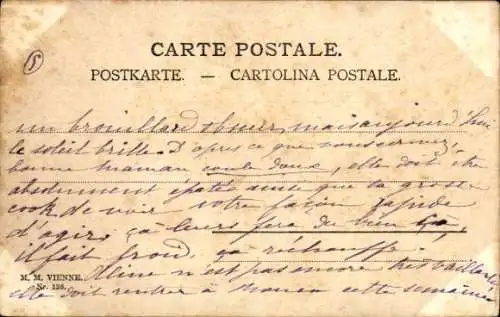 5
CARTE POSTALE.
POSTKARTE. — CARTOLINA POSTALE.
un brouillard obscur, mais aujourd'hui
le soleil brille. D'après ce que vous
bonne maman doux, elle doit être
absolument épatée ainsi que ta grosse
cook de voir votre façon rapide
d'agir, ça leurs fera du bien ça,
il fait froid, ça réchauffe.
n'est pas encore très vaillante
elle doit rentrer à cette semaine
M. M. VIENNE.
Nr. 128.